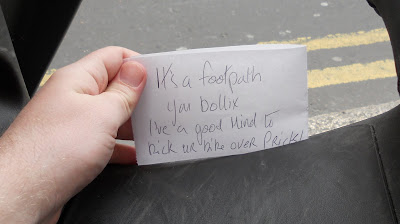 It's a footpath
you bollix
I've a good mind to
kick ur bike over PRICK!